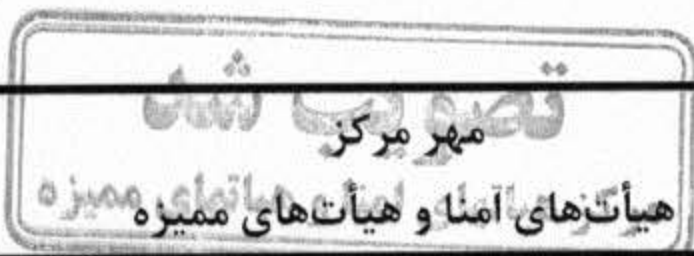 تصویب شد
مهر مرکز
هیأت‌های امنا و هیأت‌های ممیزه